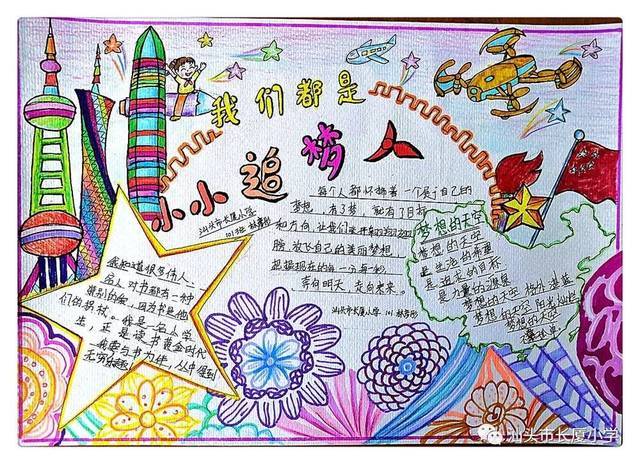 我们都是
小小追梦人
汕头市长厦小学
每个人都怀揣着一个属于自己的
梦想,有了梦,就有了目标
和方向,让我们
放飞自己的美丽梦想,
把握现在的每一分每一秒
奔向明天,走向未来。
汕头市长厦小学 101
我知道很多伟人、
名人对书都有一种
特别的爱,因为书是他
们的拐杖。我是一名小学
生,正是读书黄金时代
我要与书为伴,从中得到
无穷乐趣
梦想的天空
梦想的天空
是生活的希望
是追求的目标
是力量的源泉
梦想的天空 格外湛蓝
梦想的天空 阳光灿烂
梦想的天空
汕头市长厦小学